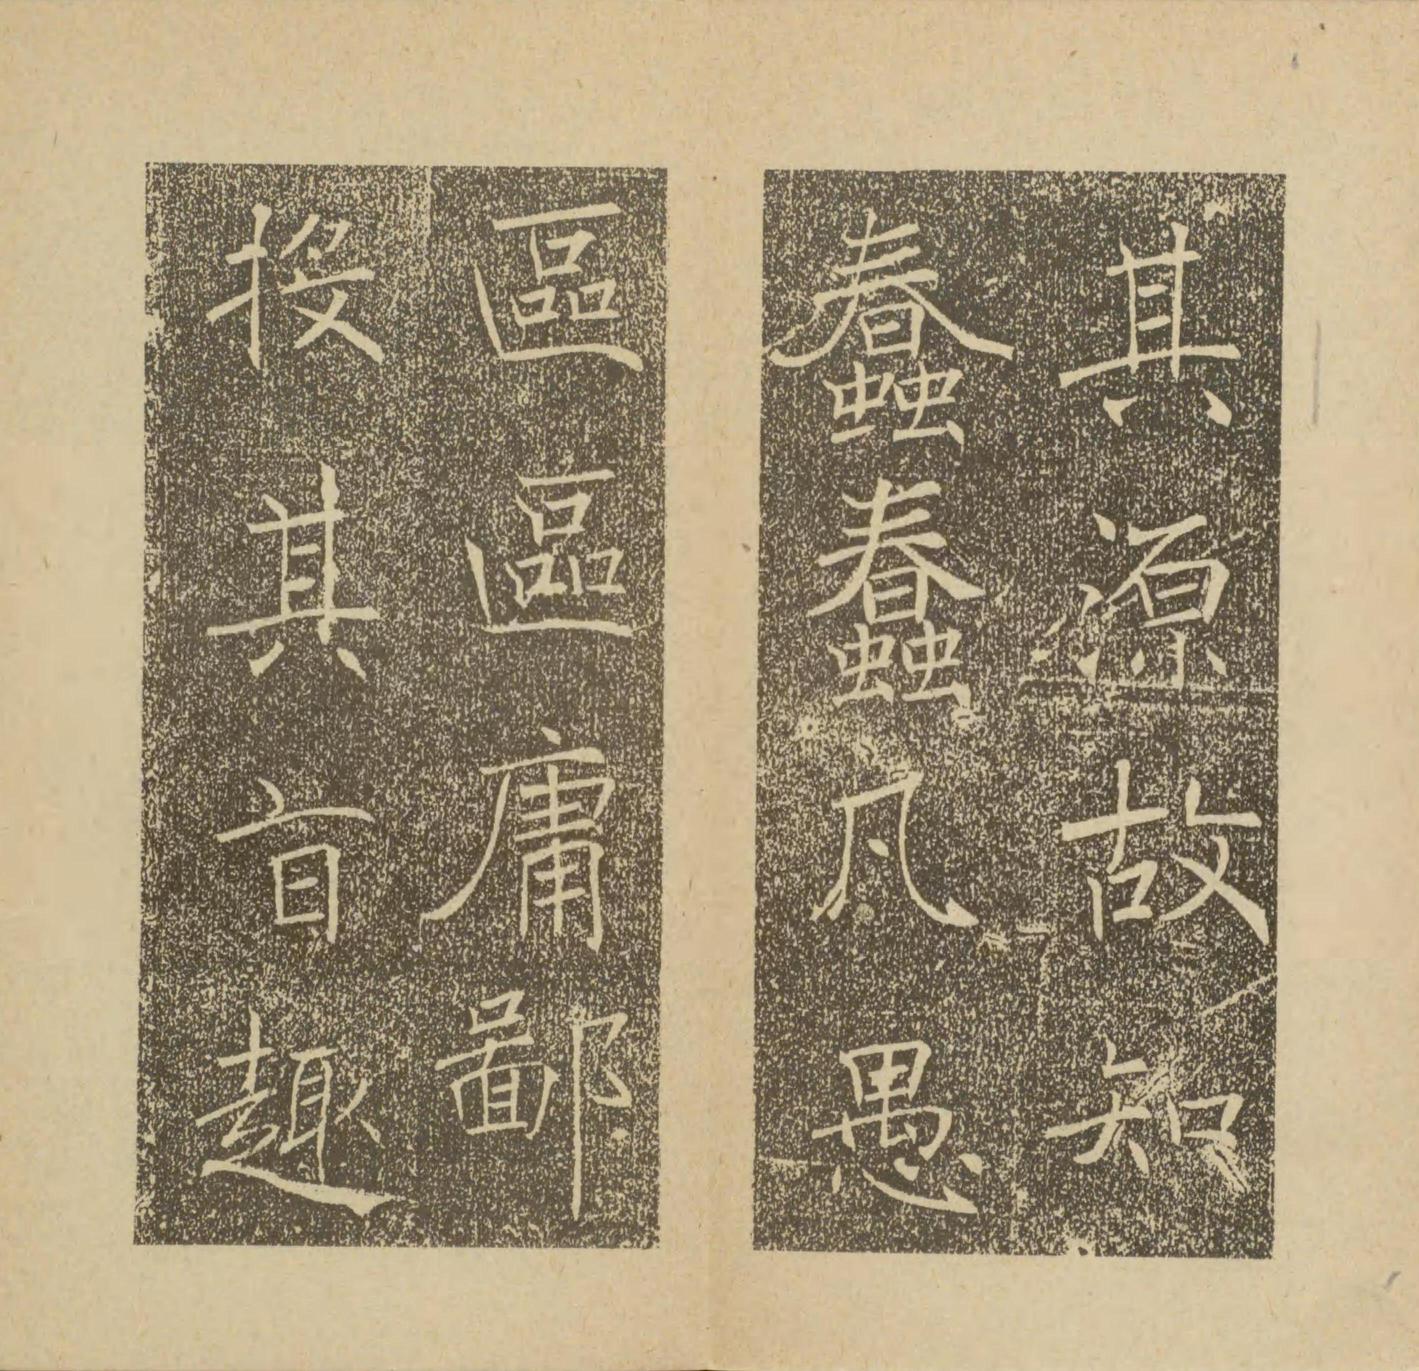 其源故知
蠢蠢凡愚
區區庸鄙
投其旨趣